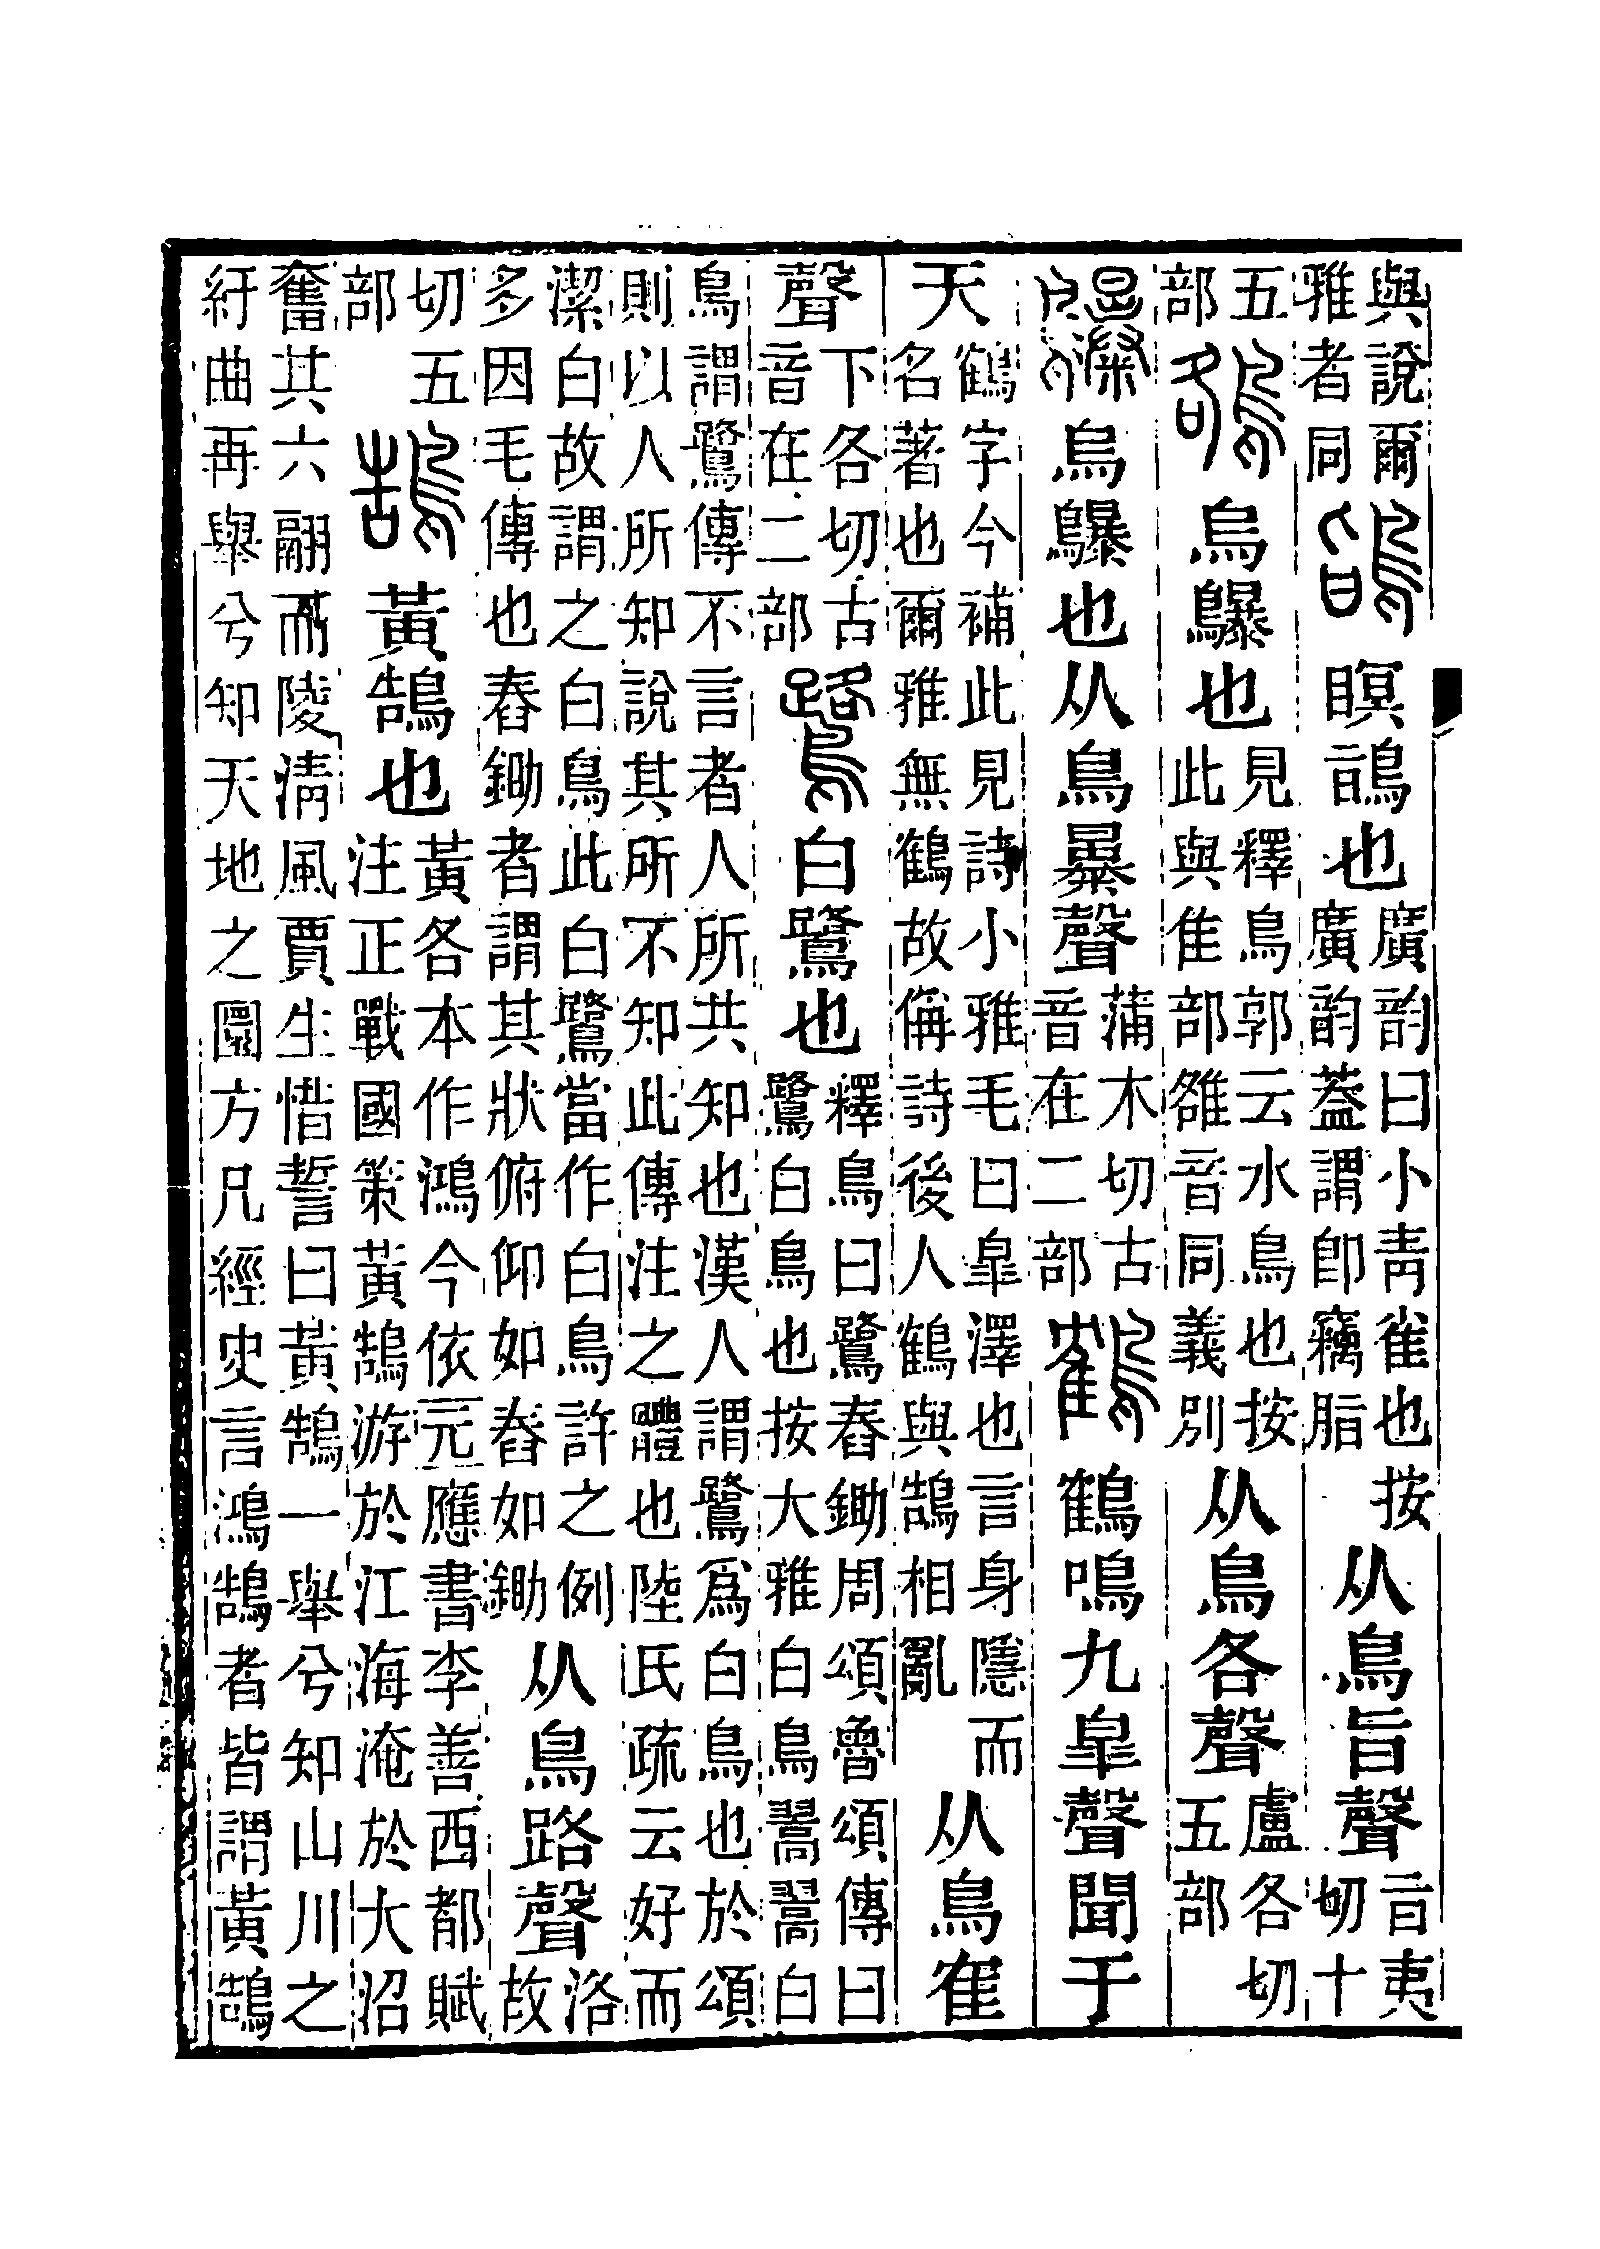 與說爾雅者同鴲瞑鴲也廣韵曰小靑雀也按廣韵蓋謂卽竊脂从鳥旨聲旨夷切十
五部鵅烏鸔也見釋鳥郭云水鳥也按此與隹部雒音同義別从鳥各聲盧各切五部
鸔烏鸔也从鳥暴聲蒲木切古音在二部鶴鶴鳴九皐聲聞于
天鶴字今補此見詩小雅毛曰皐澤也言身隱而名著也爾雅無鶴故偁詩後人鶴與鵠相亂从鳥隺
聲下各切古音在二部鷺白鷺也釋鳥曰鷺舂鋤周頌魯頌傳曰鷺白鳥也按大雅白鳥翯翯白
鳥謂鷺傳不言者人所共知也漢人謂鷺爲白鳥也於頌則以人所知說其所不知此傳注之體也陸氏疏云好而
潔白故謂之白鳥此白鷺當作白鳥許之例多因毛傳也舂鋤者謂其狀俯仰如舂如鋤从鳥路聲洛故
切五部鵠黃鵠也黃各本作鴻今依元應書李善西都賦注正戰國策黃鵠游於江海淹於大沼
奮其六翮而陵淸風賈生惜誓曰黃鵠一舉兮知山川之紆曲再舉兮知天地之圜方凡經史言鴻鵠者皆謂黃鵠